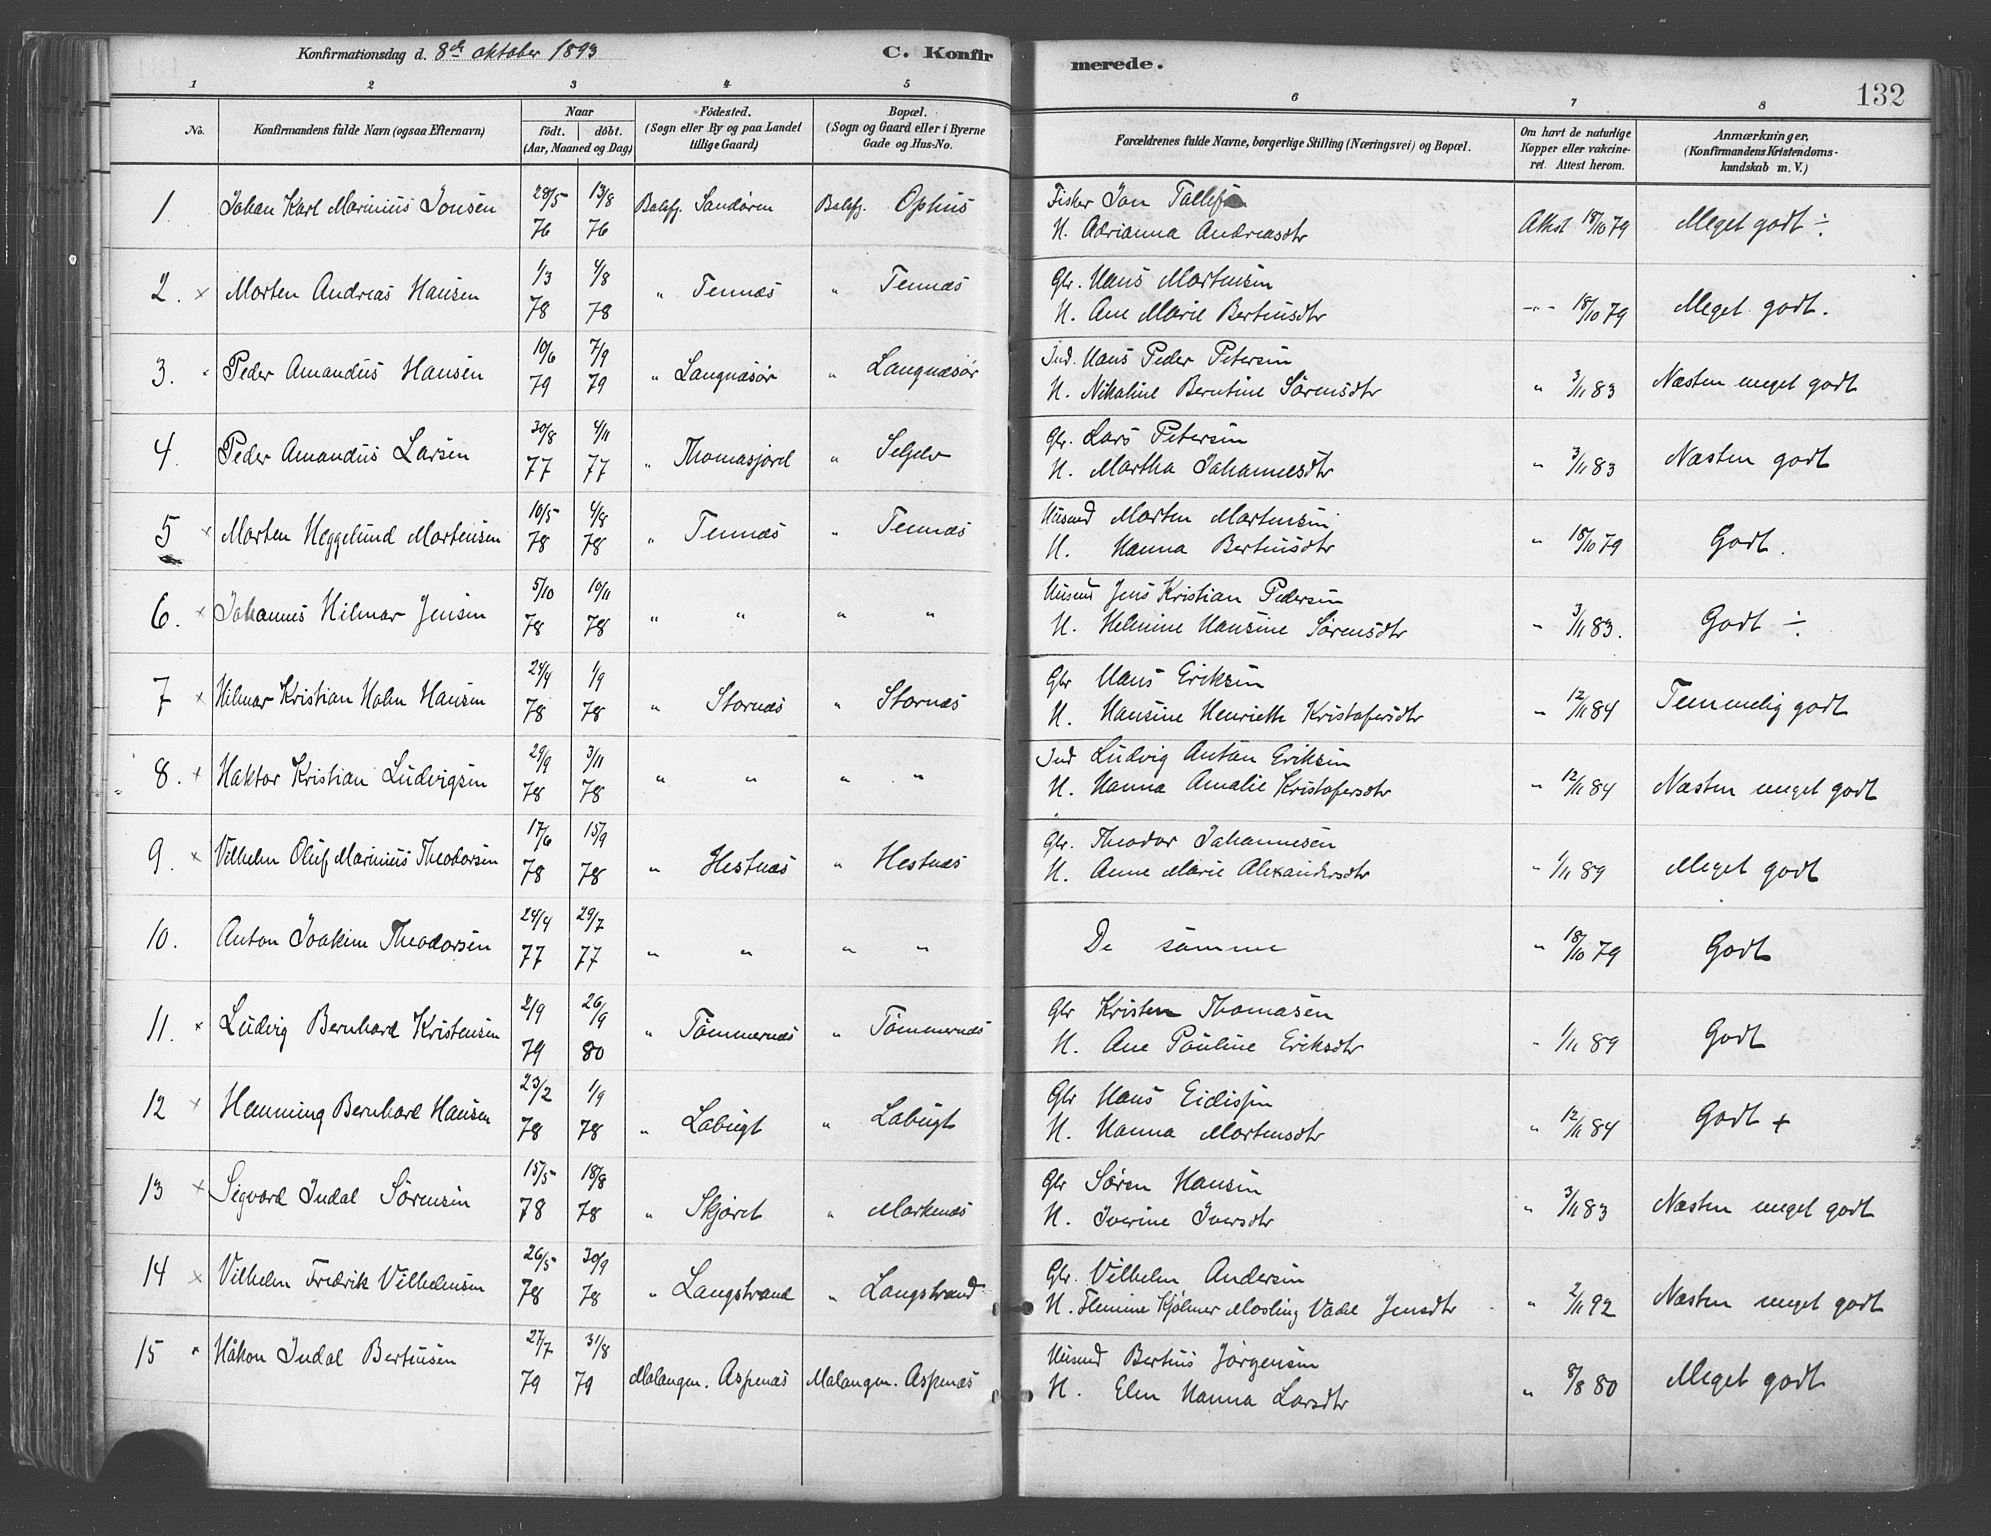 Konfirmationsdag d. 8de Oktober 1893
C. Konfirmerede.
132
1 2 3 4 5 6 7 8
No.
Konfirmandens fulde Navn (ogsaa Efternavn)
Naar
födt. döbt.
(Aar, Maaned og Dag)
Födested.
(Sogn eller By og paa Landet tillige Gaard)
Bopæl.
(Sogn og Gaard eller i Byerne Gade og Hus-No.
Forældrenes fulde Navne, borgerlige Stilling (Næringsvei) og Bopæl.
Om havt de naturlige Kopper eller vakcineret. Attest herom.
Anmærkninger,
(Konfirmandens Kristendomskundskab m. V.)
1. Johan Karl Marinius Jonsen 28/5 76 13/8 76 Balsfj. Sandören Balsfj. Ophus Fisker Jon
H. Adrianna Andreasdtr Attest 18/10 79 Meget godt ÷
2. × Morten Andreas Hansen 1/3 78 4/8 78 " Tennæs " Tennæs Gbr. Hans Mortensen
H. Ane Marie Bertheusdtr -"- 18/10 79 Meget godt.
3. Peder Amandus Hansen 10/6 79 7/9 79 " Langnæsör " Langnæsör Ind. Hans Peder Petersen
H. Nikoline Berntine Sörensdtr " 3/11 83 Næsten meget godt
4. Peder Amandus Larsen 30/8 77 4/11 77 " Thomasjord " Selelv Gbr. Lars Petersen
H. Martha Johannesdtr " 3/11 83 Næsten godt
5 × Morten Heggelund Mortensen 10/5 78 4/8 78 " Tennæs " Tennæs Husmd Morten Mortensen
H. Hanna Bertheusdtr " 18/10 79 Godt.
6. × Johannes Hilmar Jensen 5/10 78 10/11 78 " " " " Husmd Jens Kristian Pedersen
H. Helmine Hansine Sörensdtr " 3/11 83. Godt ÷
7 × Hilmar Kristian Holm Hansen 24/4 78 1/9 78 " Stornæs " Stornæs Gbr Hans Eriksen
H. Hansine Henriette Kristofersdtr " 12/11 84 Temmelig godt
8. × Haktor Kristian Ludvigsen 29/9 78 3/11 78 " " " " Ind Ludvig Anton Eriksen
H. Hanna Amalie Kristofersdtr " 12/11 84 Næsten meget godt
9. × Vilhelm Oluf Marinius Theodorsen 17/6 78 15/9 78 " Hestnæs " Hestnæs Gbr. Theodor Johannesen
H. Anne Marie Alexandersdtr " 1/11 89 Meget godt
10. Anton Joakim Theodorsen 24/4 77 29/7 77 " " " " De samme " 18/10 79 Godt
11. × Ludvig Bernhard Kristensen 2/9 79 26/9 80 " Tömmernæs " Tömmernæs Gbr Kristen Thomasen
H. Ane Pauline Eriksdtr " 1/11 89 Godt
12 × Hemming Bernhard Hansen 23/2 78 1/9 78 " Labugt " Labugt Gbr Hans Eidissen
H. Hanna Mortensdtr " 12/11 84 Godt +
13 × Sigvard Indal Sörensen 15/5 78 18/8 78 " Skjäret " Markenæs Gbr Sören Hansen
H. Iverine Iversdtr " 3/11 83 Næsten meget godt
14 × Vilhelm Fredrik Vilhelmsen 26/5 78 30/9 78 " Langstrand " Langstrand Gbr. Vilhelm Andersen
H. Flemine Kjölmer Mosling Vadel Jensdtr " 2/11 92 Næsten meget godt
15 × Håkon Indal Bertheusen 27/7 79 31/8 79 Malangen. Aspenæs Malangen. Aspenæs Husmd Bertheus Jörgensen
H. Elen Hanna Larsdtr " 8/8 80 Meget godt